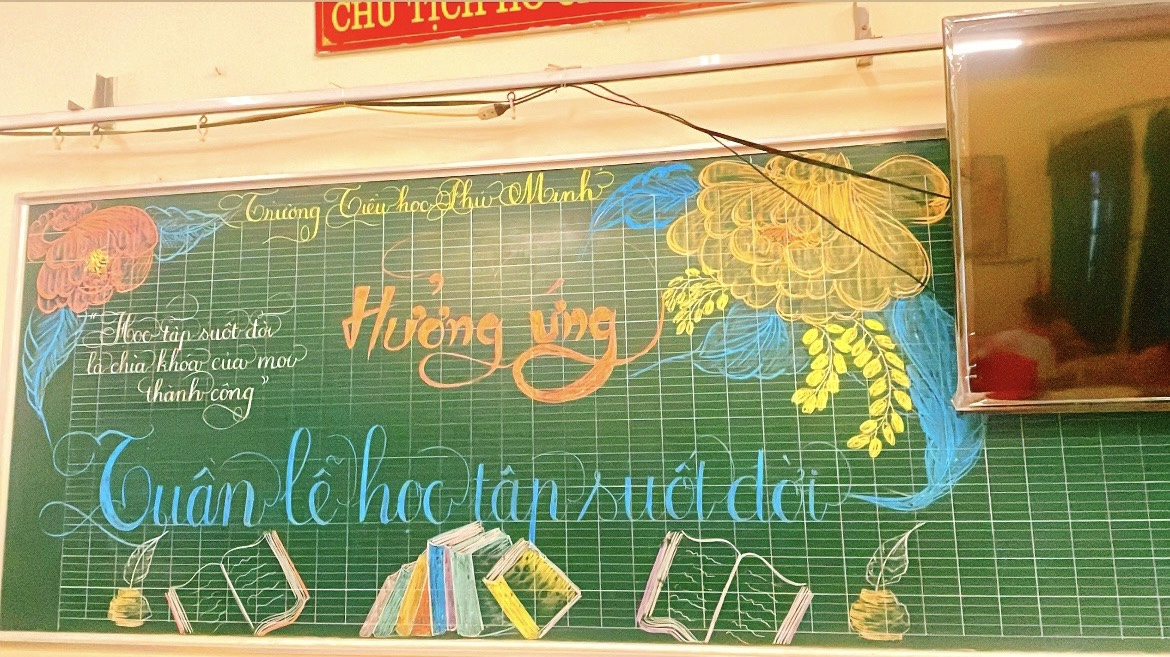 CHỦ TỊCH HỒ
Trường Tiểu học Phú Minh
Hưởng ứng
"Học tập suốt đời
là chìa khóa của mọi
thành công"
Tuần lễ học tập suốt đời